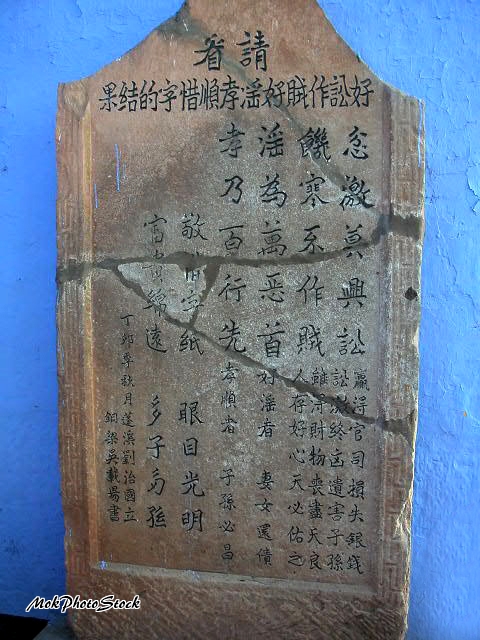 請看
好訟作賊好淫孝順惜字的結果
忿激莫興訟 贏得官司損失銀錢
訟則終凶遺害子孫
饑寒不作賊 雖得財物喪盡天良
人存好心天必佑之
淫為萬惡首 好淫者 妻女還債
孝乃百行先 孝順者 子孫必昌
敬惜字紙 眼目光明
富貴綿遠 多子多孫
丁卯季秋月蓬溪劉治國立
銅梁吳載揚書
MokPhotoStock